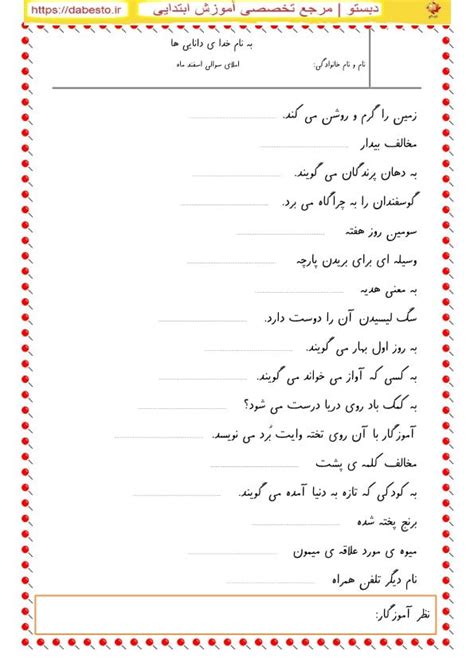 دبستو | مرجع تخصصصی آموزش ابتدایی https://dabesto.ir
به نام خدا ی دانایی ها
نام و نام خانوادگی: املای سوالی اسفند ماه
زمین را گرم و روشن می کند.
مخالف بیدار
به دهان پرندگان می گویند.
گوسفندان را به چراگاه می برد.
سومین روز هفته
وسیله ای برای بریدن پارچه
به معنی هدیه
سگ لیسیدن آن را دوست دارد.
به روز اول بهار می گویند.
به کسی که آواز می خواند می گویند.
به کمک باد روی دریا درست می شود؟
آموزگار با آن روی تخته وایت بُرد می نویسد.
مخالف کلمه ی پشت
به کودکی که تازه به دنیا آمده می گویند.
برنج پخته شده
میوه ی مورد علاقه ی میمون
نام دیگر تلفن همراه
نظر آموزگار: